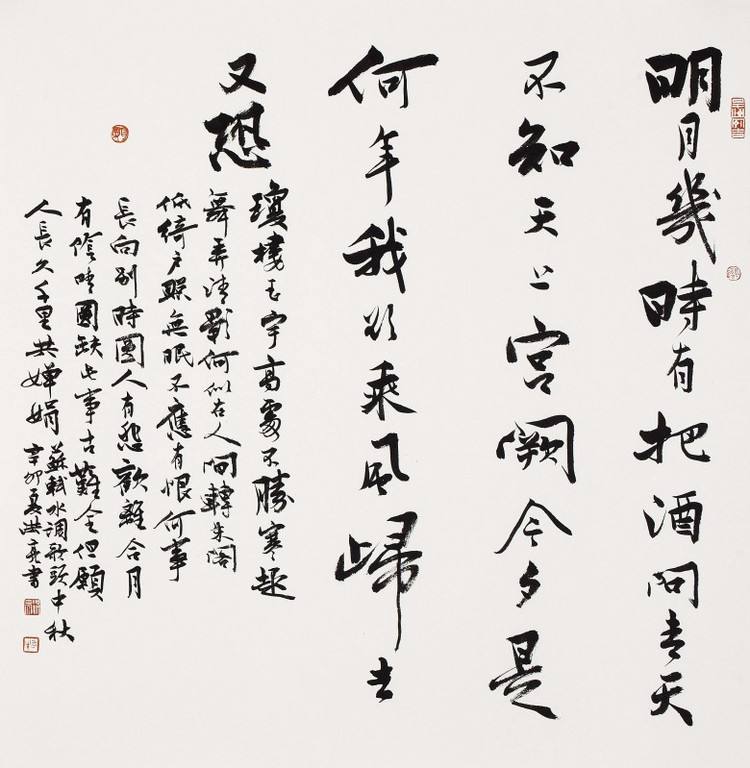 明月幾時有把酒問青天
不知天上宮闕今夕是
何年我欲乘風歸去
又恐
瓊樓玉宇高處不勝寒起
舞弄清影何似在人間轉朱閣
低綺戶照無眠不應有恨何事
長向別時圓人有悲歡離合月
有陰晴圓缺此事古難全但願
人長久千里共嬋娟
蘇軾水調歌頭中秋
辛卯夏洪亮書